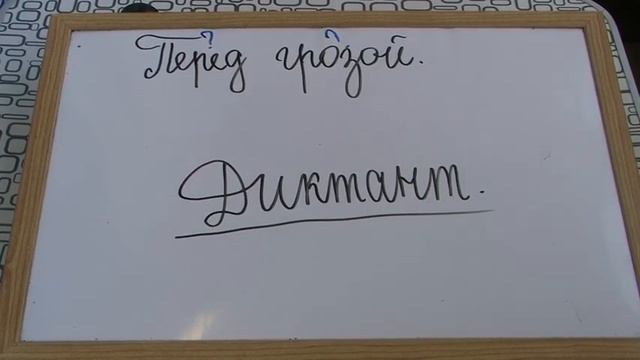 Перед грозой.
Диктант.